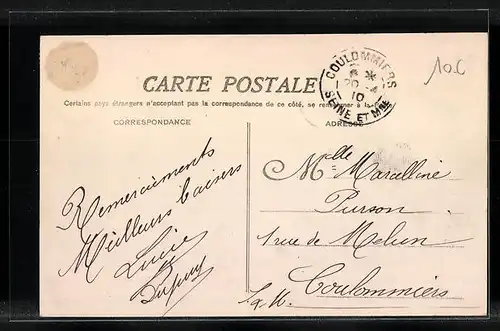 COULOMMIERS
20 - 4
10
SEINE ET MNE
10.C
CARTE POSTALE
Certains pays étrangers n'acceptant pas la correspondance de ce côté, se renseigner à la
CORRESPONDANCE
ADRESSE
Remerciements
Meilleurs baisers
Lucie
Mlle Marcelline
Purson
1 rue de Melun
Coulommiers
S. & M.